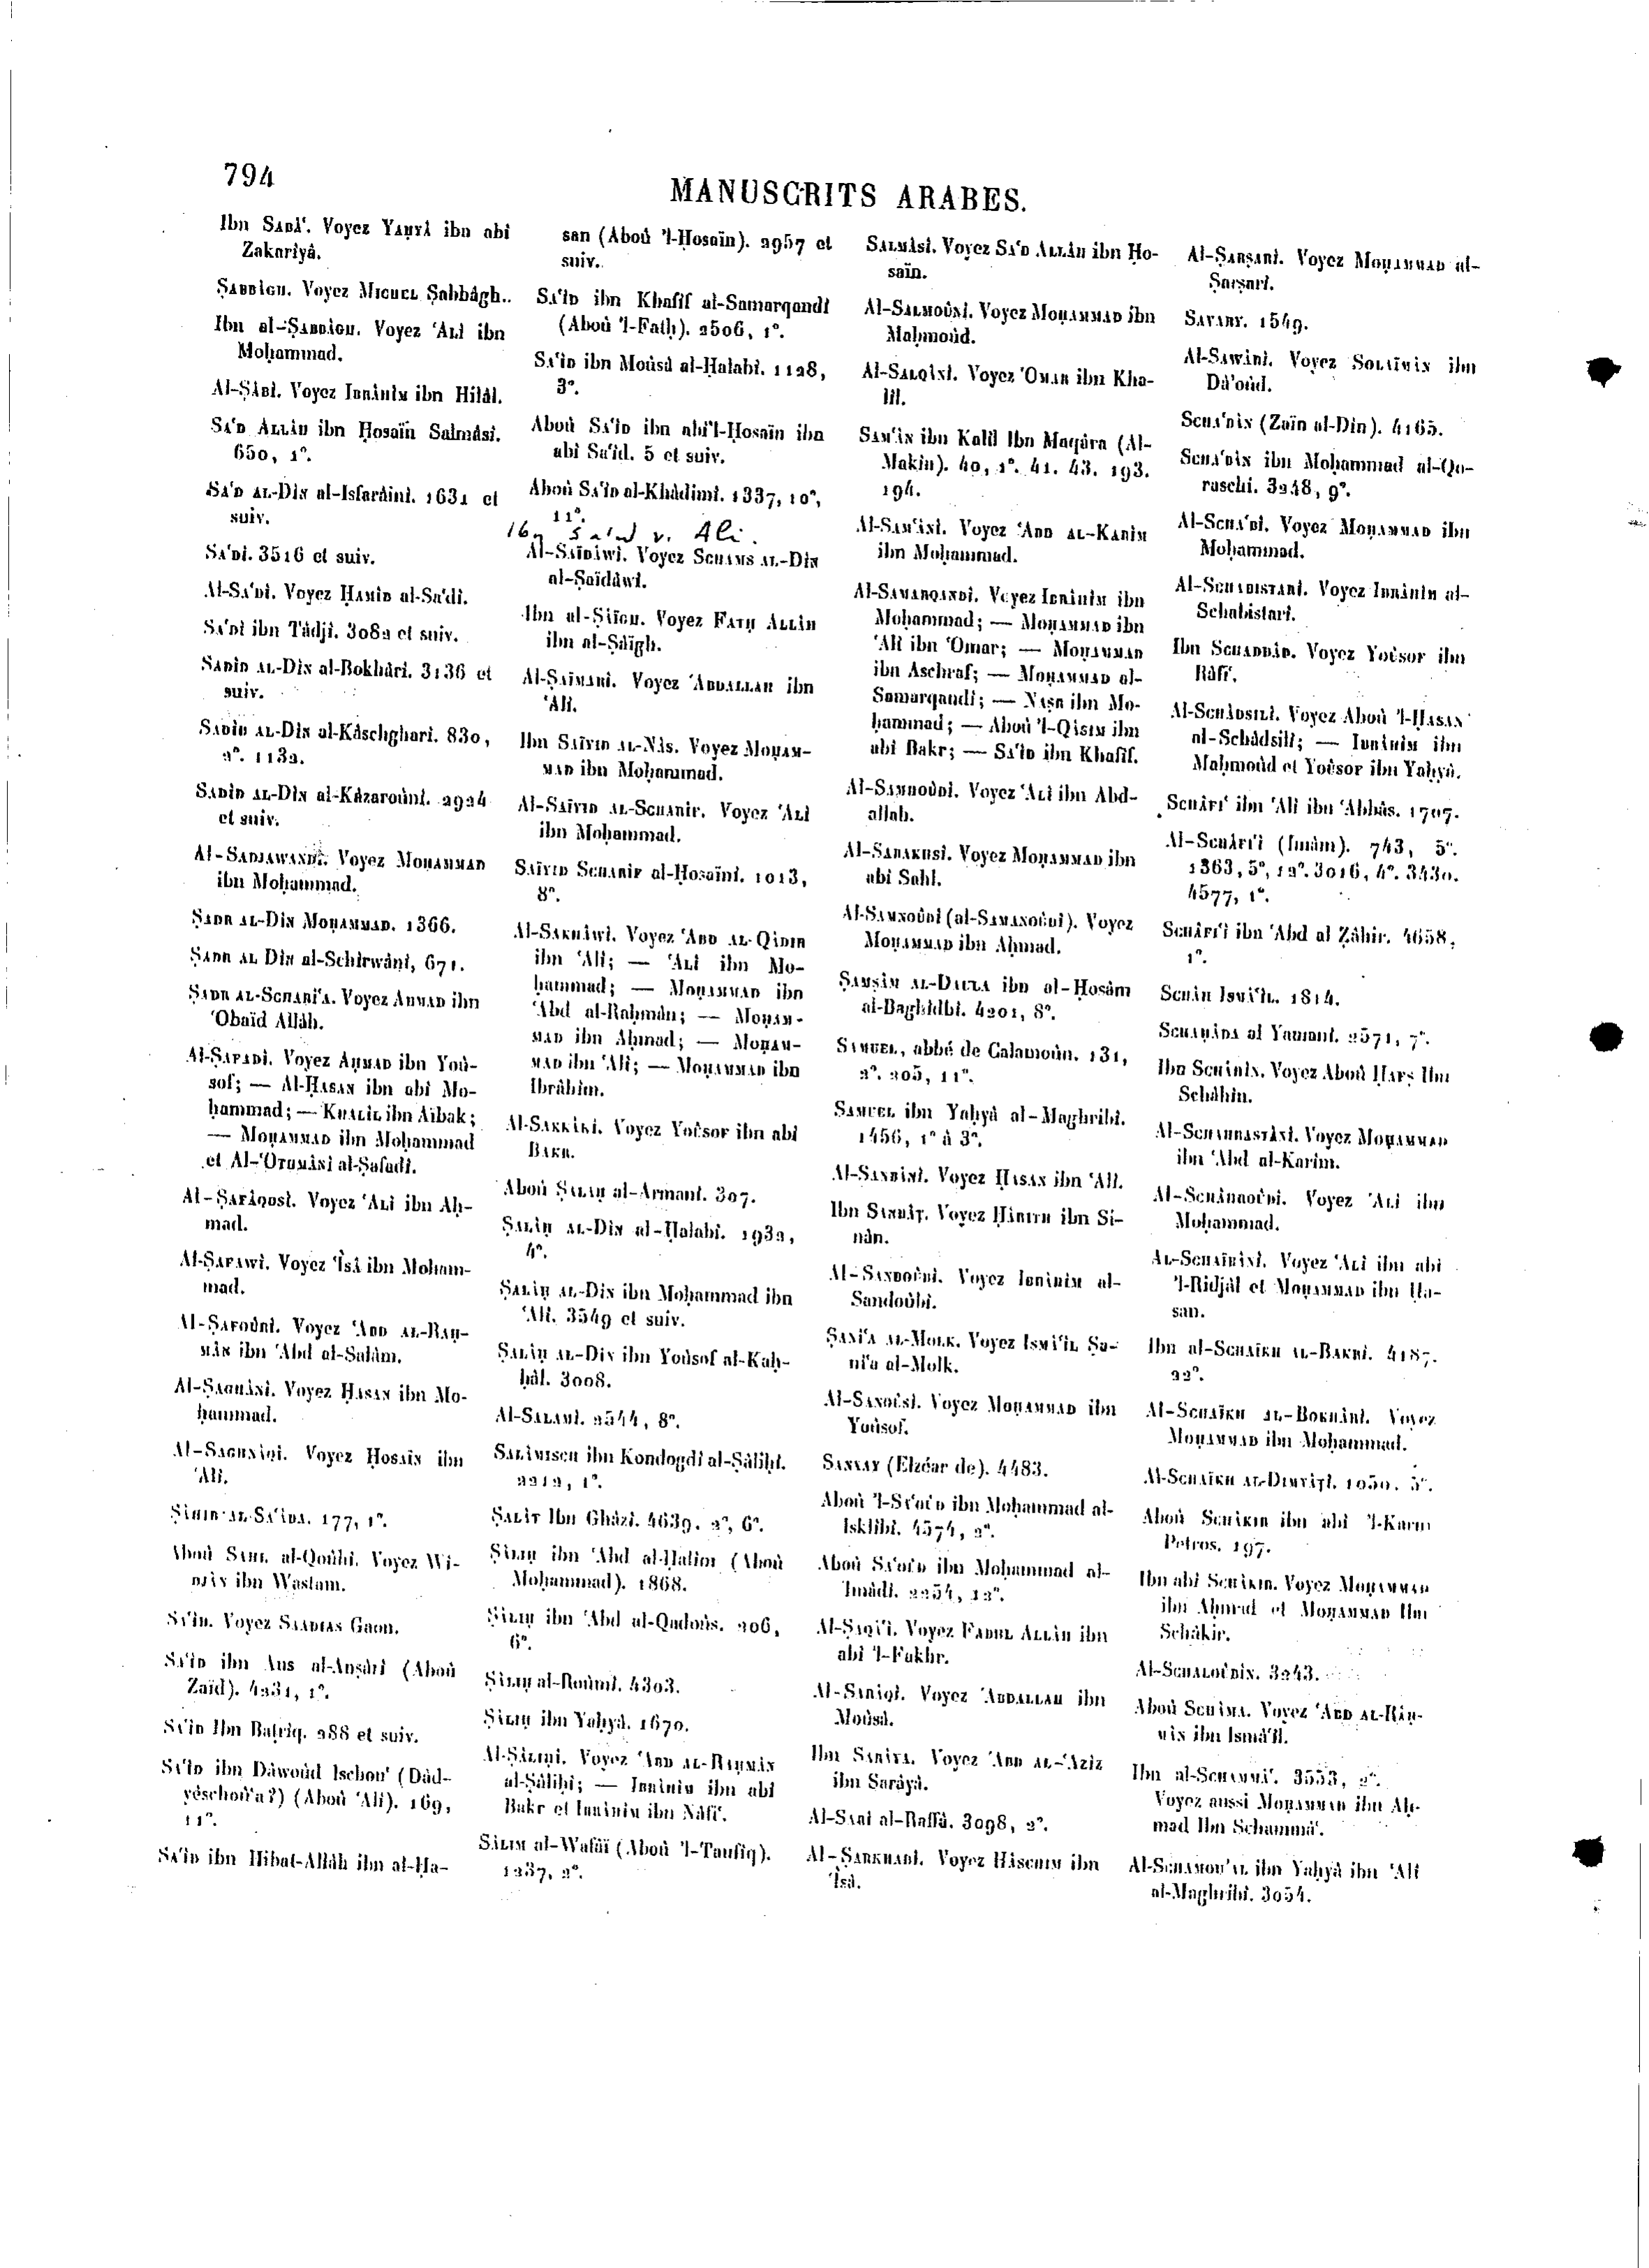 794
MANUSCRITS ARABES.
Ibn Sabâ‘. Voyez Yaḥyâ ibn abi
Zakariyâ.
Sabbâgh. Voyez Michel Ṣabbâgh.
Ibn al-Ṣabbâgh. Voyez ‘Alî ibn
Moḥammad.
Al-Ṣâbî. Voyez Ibrâhîm ibn Hilâl.
Sa‘d Allâh ibn Ḥosaïn Salmâsî.
650, 1°.
Sa‘d al-Dîn al-Isfarâïnî. 1631 et
suiv.
Sa‘dî. 3516 et suiv.
Al-Sa‘dî. Voyez Ḥamîd al-Sa‘dî.
Sa‘dî ibn Tâdjî. 3082 et suiv.
Sadîd al-Dîn al-Bokhârî. 3136 et
suiv.
Sadîd al-Dîn al-Kâschgharî. 830,
2°. 1132.
Sadîd al-Dîn al-Kâzaroûnî. 2924
et suiv.
Al-Sadjâwandî. Voyez Moḥammad
ibn Moḥammad.
Ṣadr al-Dîn Moḥammad. 1366.
Ṣadr al Dîn al-Schîrwânî, 671.
Ṣadr al-Scharî‘a. Voyez Aḥmad ibn
‘Obaïd Allâh.
Al-Ṣafadî. Voyez Aḥmad ibn Yoû-
sof; — Al-Ḥasan ibn abî Mo-
ḥammad; — Khalîl ibn Aïbak;
— Moḥammad ibn Moḥammad
et Al-‘Othmânî al-Ṣafadî.
Al-Ṣafâqosî. Voyez ‘Alî ibn Aḥ-
mad.
Al-Ṣafawî. Voyez ‘Îsâ ibn Moḥam-
mad.
Al-Ṣafoûrî. Voyez ‘Abd al-Raḥ-
mân ibn ‘Abd al-Salâm.
Al-Ṣaghânî. Voyez Ḥasan ibn Mo-
ḥammad.
Al-Saghnâqî. Voyez Ḥosaïn ibn
‘Alî.
177, 1°.
Aboû Sahl al-Qoûhî. Voyez Wi-
ibn Wastam.
Sa‘îd. Voyez Saadias Gaon.
Sa‘îd ibn Aus al-Anṣârî (Aboû
Zaïd). 4231, 1°.
Sa‘îd Ibn Baṭrîq. 288 et suiv.
Sa‘îd ibn Dâwoûd Ischou‘ (Dâd-
yéschoû‘a?) (Aboû ‘Alî). 169,
11°.
Sa‘îd ibn Hibat-Allâh ibn al-Ḥa-
san (Aboû 'l-Ḥosaïn). 2957 et
suiv.
Sa‘îd ibn Khafîf al-Samarqandî
(Aboû 'l-Fatḥ). 2506, 1°.
Sa‘îd ibn Moûsâ al-Ḥalabî. 1128,
3°.
Aboû Sa‘îd ibn abi'l-Ḥosaïn ibn
abî Sa‘îd. 5 et suiv.
Aboû Sa‘îd al-Khâdimî. 1337, 10°,
11°.
Ibn Saïd v. Ali.
Al-Ṣaïdâwî. Voyez Schams al-Dîn
al-Ṣaïdâwî.
Ibn al-Ṣâïgh. Voyez Fatḥ Allâh
ibn al-Ṣâïgh.
Al-Ṣaïmarî. Voyez ‘Abdallah ibn
‘Alî.
Ibn Saïyid al-Nâs. Voyez Moḥam-
mad ibn Moḥammad.
Al-Saïyid al-Scharîf. Voyez ‘Alî
ibn Moḥammad.
Saïyid Scharîf al-Ḥosaïnî. 1013,
8°.
Al-Sakhâwî. Voyez ‘Abd al-Qâdir
ibn ‘Alî; — ‘Alî ibn Mo-
ḥammad; — Moḥammad ibn
‘Abd al-Raḥmân; — Moḥam-
mad ibn Aḥmad; — Moḥam-
mad ibn ‘Alî; — Moḥammad ibn
Ibrâhîm.
Al-Sakkâkî. Voyez Yoûsof ibn abî
Bakr.
Aboû Ṣâliḥ al-Armanî. 307.
Ṣalâḥ al-Dîn al-Ḥalabî. 1932,
4°.
Ṣalâḥ al-Dîn ibn Moḥammad ibn
‘Alî. 3549 et suiv.
Ṣalâḥ al-Dîn ibn Yoûsof al-Kaḥ-
ḥâl. 3008.
Al-Salamî. 2544, 8°.
Salâmisch ibn Kondogdî al-Ṣâliḥî.
2212, 1°.
Ṣalît Ibn Ghâzî. 4639. 2°, 6°.
Ṣâliḥ ibn ‘Abd al-Ḥalîm (Aboû
Moḥammad). 1868.
Ṣâliḥ ibn ‘Abd al-Qadoûs. 206,
6°.
Ṣâliḥ al-Roûmî. 4303.
Ṣâliḥ ibn Yaḥyâ. 1670.
Al-Ṣâliḥî. Voyez ‘Abd al-Raḥmân
al-Ṣâliḥî; — Ibrâhîm ibn abî
Bakr et Ibrâhîm ibn Nâfî‘.
Sâlim al-Wafâï (Aboû 'l-Taufîq).
1237, 2°.
Salmâsî. Voyez Sa‘d Allâh ibn Ḥo-
saïn.
Al-Salmoûnî. Voyez Moḥammad ibn
Maḥmoûd.
Al-Salqînî. Voyez ‘Omar ibn Kha-
lîl.
Sam‘ân ibn Kalîl Ibn Maqâra (Al-
Makîn). 40, 1°. 41. 43. 193.
194.
Al-Sam‘ânî. Voyez ‘Abd al-Karîm
ibn Moḥammad.
Al-Samarqandî. Voyez Ibrâhîm ibn
Moḥammad; — Moḥammad ibn
‘Alî ibn ‘Omar; — Moḥammad
ibn Aschraf; — Moḥammad al-
Samarqandî; — Naṣr ibn Mo-
ḥammad; — Aboû 'l-Qâsim ibn
abî Bakr; — Sa‘îd ibn Khafîf.
Al-Samhoûdî. Voyez ‘Alî ibn Abd-
allah.
Al-Sarakhsî. Voyez Moḥammad ibn
abî Sahl.
Al-Samnoûdî (al-Samanoûdî). Voyez
Moḥammad ibn Aḥmad.
Ṣamṣâm al-Daula ibn al-Ḥosâm
al-Baghîdî. 4201, 8°.
Samuel, abbé de Calamoûn. 131,
2°. 205, 11°.
Samuel ibn Yaḥyâ al-Maghribî.
1456, 1° à 3°.
Voyez Ḥasan ibn ‘Alî.
Voyez ibn Si-
nân.
Al-Sandoûbî. Voyez Ibrâhîm al-
Sandoûbî.
Ṣanî‘a al-Molk. Voyez Ismâ‘îl Ṣa-
nî‘a al-Molk.
Al-Sanoûsî. Voyez Moḥammad ibn
Yoûsof.
(Elzéar de). 4483.
Aboû 'l-So‘oûd ibn Moḥammad al-
Isklîbî. 4574, 2°.
Aboû So‘oûd ibn Moḥammad al-
‘Imâdî. 2254, 12°.
Al-Ṣaqâ‘î. Voyez Fadhl Allâh ibn
abî 'l-Fakhr.
Voyez ‘Abdallah ibn
Moûsâ.
Ibn Sarâyâ. Voyez ‘Abd al-‘Azîz
ibn Sarâyâ.
Al-Sarî al-Raffâ. 3098, 2°.
Al-Ṣarkhadî. Voyez Hâschim ibn
‘Îsâ.
Al-Ṣarṣarî. Voyez Moḥammad al-
Ṣarṣarî.
Savary. 1549.
Al-Sawârî. Voyez Solaïmân ibn
Dâ'oûd.
Scha‘bân (Zaïn al-Dîn). 4165.
Scha‘bân ibn Moḥammad al-Qo-
raschî. 3248, 9°.
Al-Scha‘bî. Voyez Moḥammad ibn
Moḥammad.
Al-Schabistarî. Voyez Ibrâhîm al-
Schabistarî.
Ibn Schaddâd. Voyez Yoûsof ibn
Râfî‘.
Al-Schâdsilî. Voyez Aboû 'l-Ḥasan
al-Schâdsilî; — Ibrâhîm ibn
Maḥmoûd et Yoûsof ibn Yaḥyâ.
Schâfî‘ ibn ‘Alî ibn ‘Abbâs. 1707.
Al-Schâfi‘î (Imâm). 743, 5°.
1363, 5°, 12°. 3016, 4°. 3430.
4577, 1°.
Schâfi‘î ibn ‘Abd al Zâhir. 4658,
1°.
Schâh Ismâ‘îl. 1814.
al Yamanî. 2571, 7°.
Ibn Schâhîn. Voyez Aboû Ḥafṣ Ibn
Schâhîn.
Al-Schahrastânî. Voyez Moḥammad
ibn ‘Abd al-Karîm.
Voyez ‘Alî ibn
Moḥammad.
Al-Schaïbânî. Voyez ‘Alî ibn abî
'l-Ridjâl et Moḥammad ibn Ḥa-
san.
Ibn al-Schaïkh al-Bakrî. 4187.
22°.
Al-Schaïkh al-Bokhârî. Voyez
Moḥammad ibn Moḥammad.
Al-Schaïkh al-Dimyâṭî. 1050. 5°.
Aboû Schâkir ibn abî 'l-Karm
Petros. 197.
Ibn abî Schâkir. Voyez Moḥammad
ibn Aḥmad et Moḥammad Ibn
Schâkir.
Al-Schaloûbîn. 3243.
Aboû Schâma. Voyez ‘Abd al-Raḥ-
mân ibn Ismâ‘îl.
Ibn al-Schammâ‘. 3553, 2°.
Voyez aussi Moḥammad ibn Aḥ-
mad Ibn Schammâ‘.
Al-Schamou'îl ibn Yaḥyâ ibn ‘Alî
al-Maghribî. 3054.